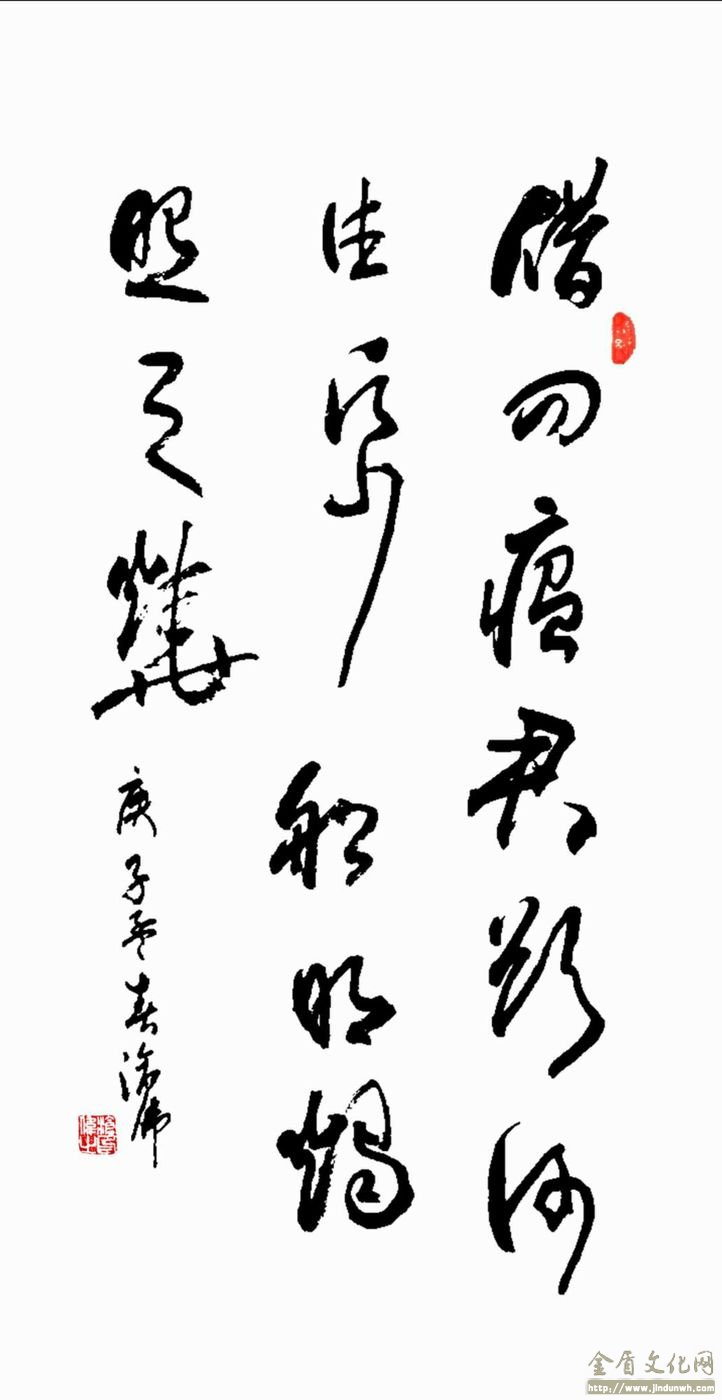 借问瘟君欲何
往帋船明燭
照天燒
庚子孟春
金盾文化网
http://www.jindunwh.com